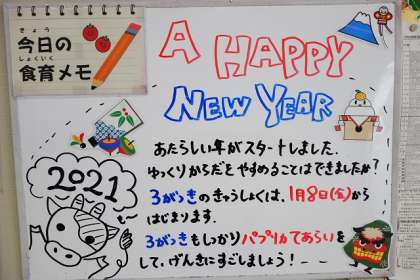 きょう
今日の
しょくいく
食育メモ
A HAPPY
NEW YEAR
2021
あたらしい年がスタートしました。
ゆっくりからだをやすめることはできましたか？
3がっきのきゅうしょくは、1月8日(金)から
はじまります。
3がっきもしっかりパプリカてあらいを
して、げんきにすごしましょう！